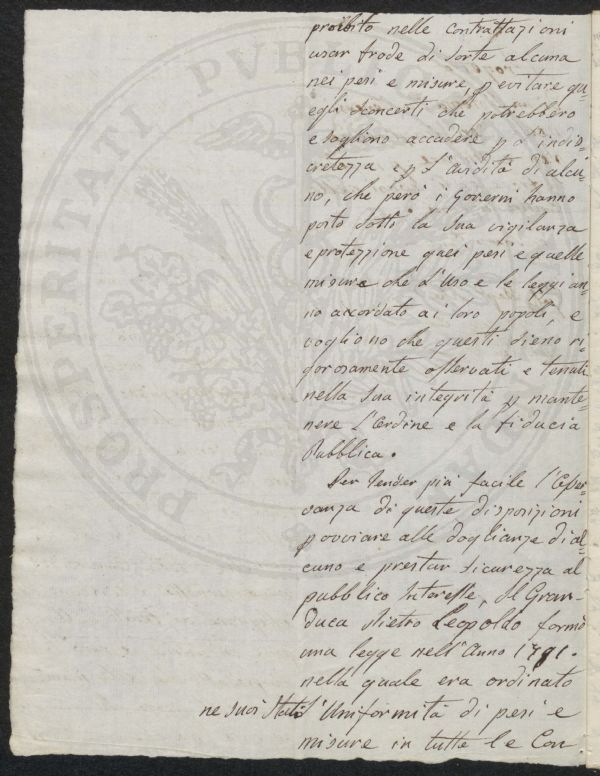 proibito nelle contrattazioni
usar frode di sorte alcuna
nei pesi e misure, p evitare qu=
egli sconcerti che potrebbero
e sogliono accadere p l'indis=
cretezza e p l'avidità di alcu=
no, che però i Governi hanno
posto sotto la sua vigilanza
e protezzione quei pesi e quelle
misure che l'Uso e le leggi an=
no accordato ai loro popoli, e
vogliono che questi sieno ri=
gorosamente osservati e tenuti
nella sua integrità p mante=
nere l'Ordine e la fiducia
Pubblica.
Per render più facile l'Osser=
vanza di queste disposizioni
p ovviare alle doglianze di al=
cuno e prestar sicurezza al
pubblico Interesse, il Gran=
duca Pietro Leopoldo formò
una legge nell'Anno 1791.
nella quale era ordinato
ne suoi Stati l'Uniformità di pesi e
misure in tutte le Con
PROSPERITATI PVB DA